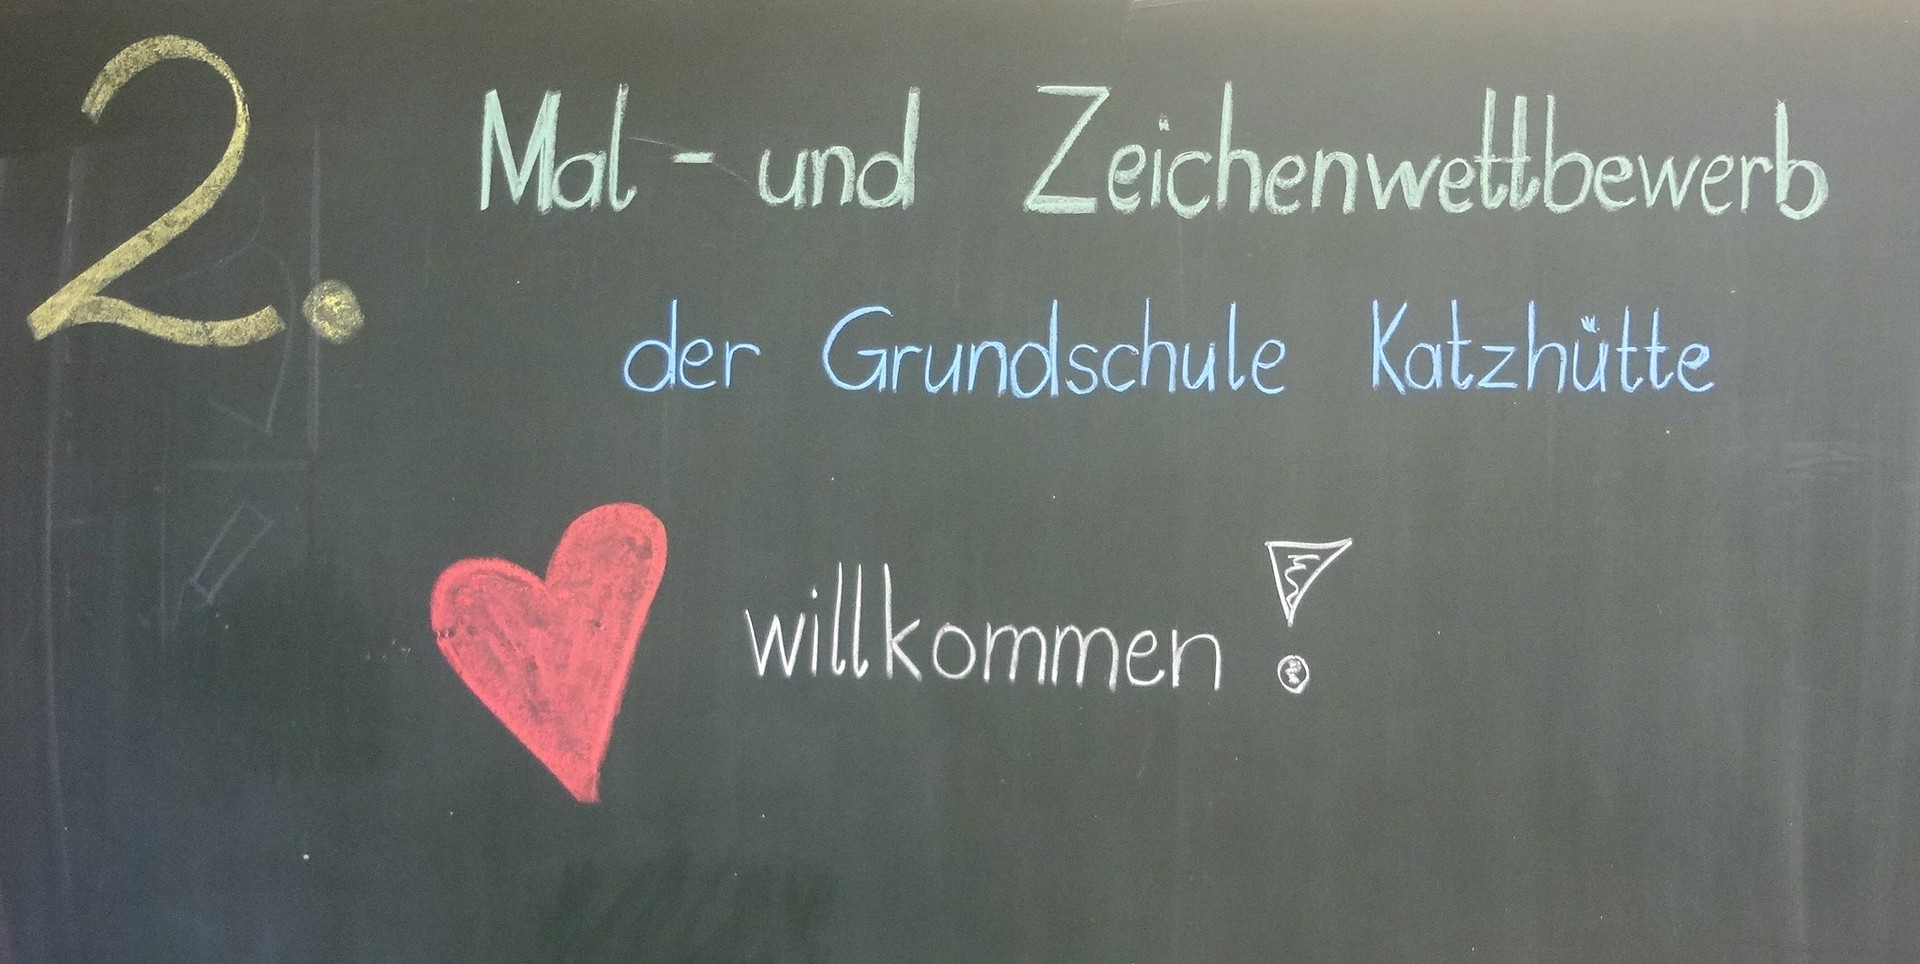 2. Mal- und Zeichenwettbewerb
der Grundschule Katzhütte
willkommen!